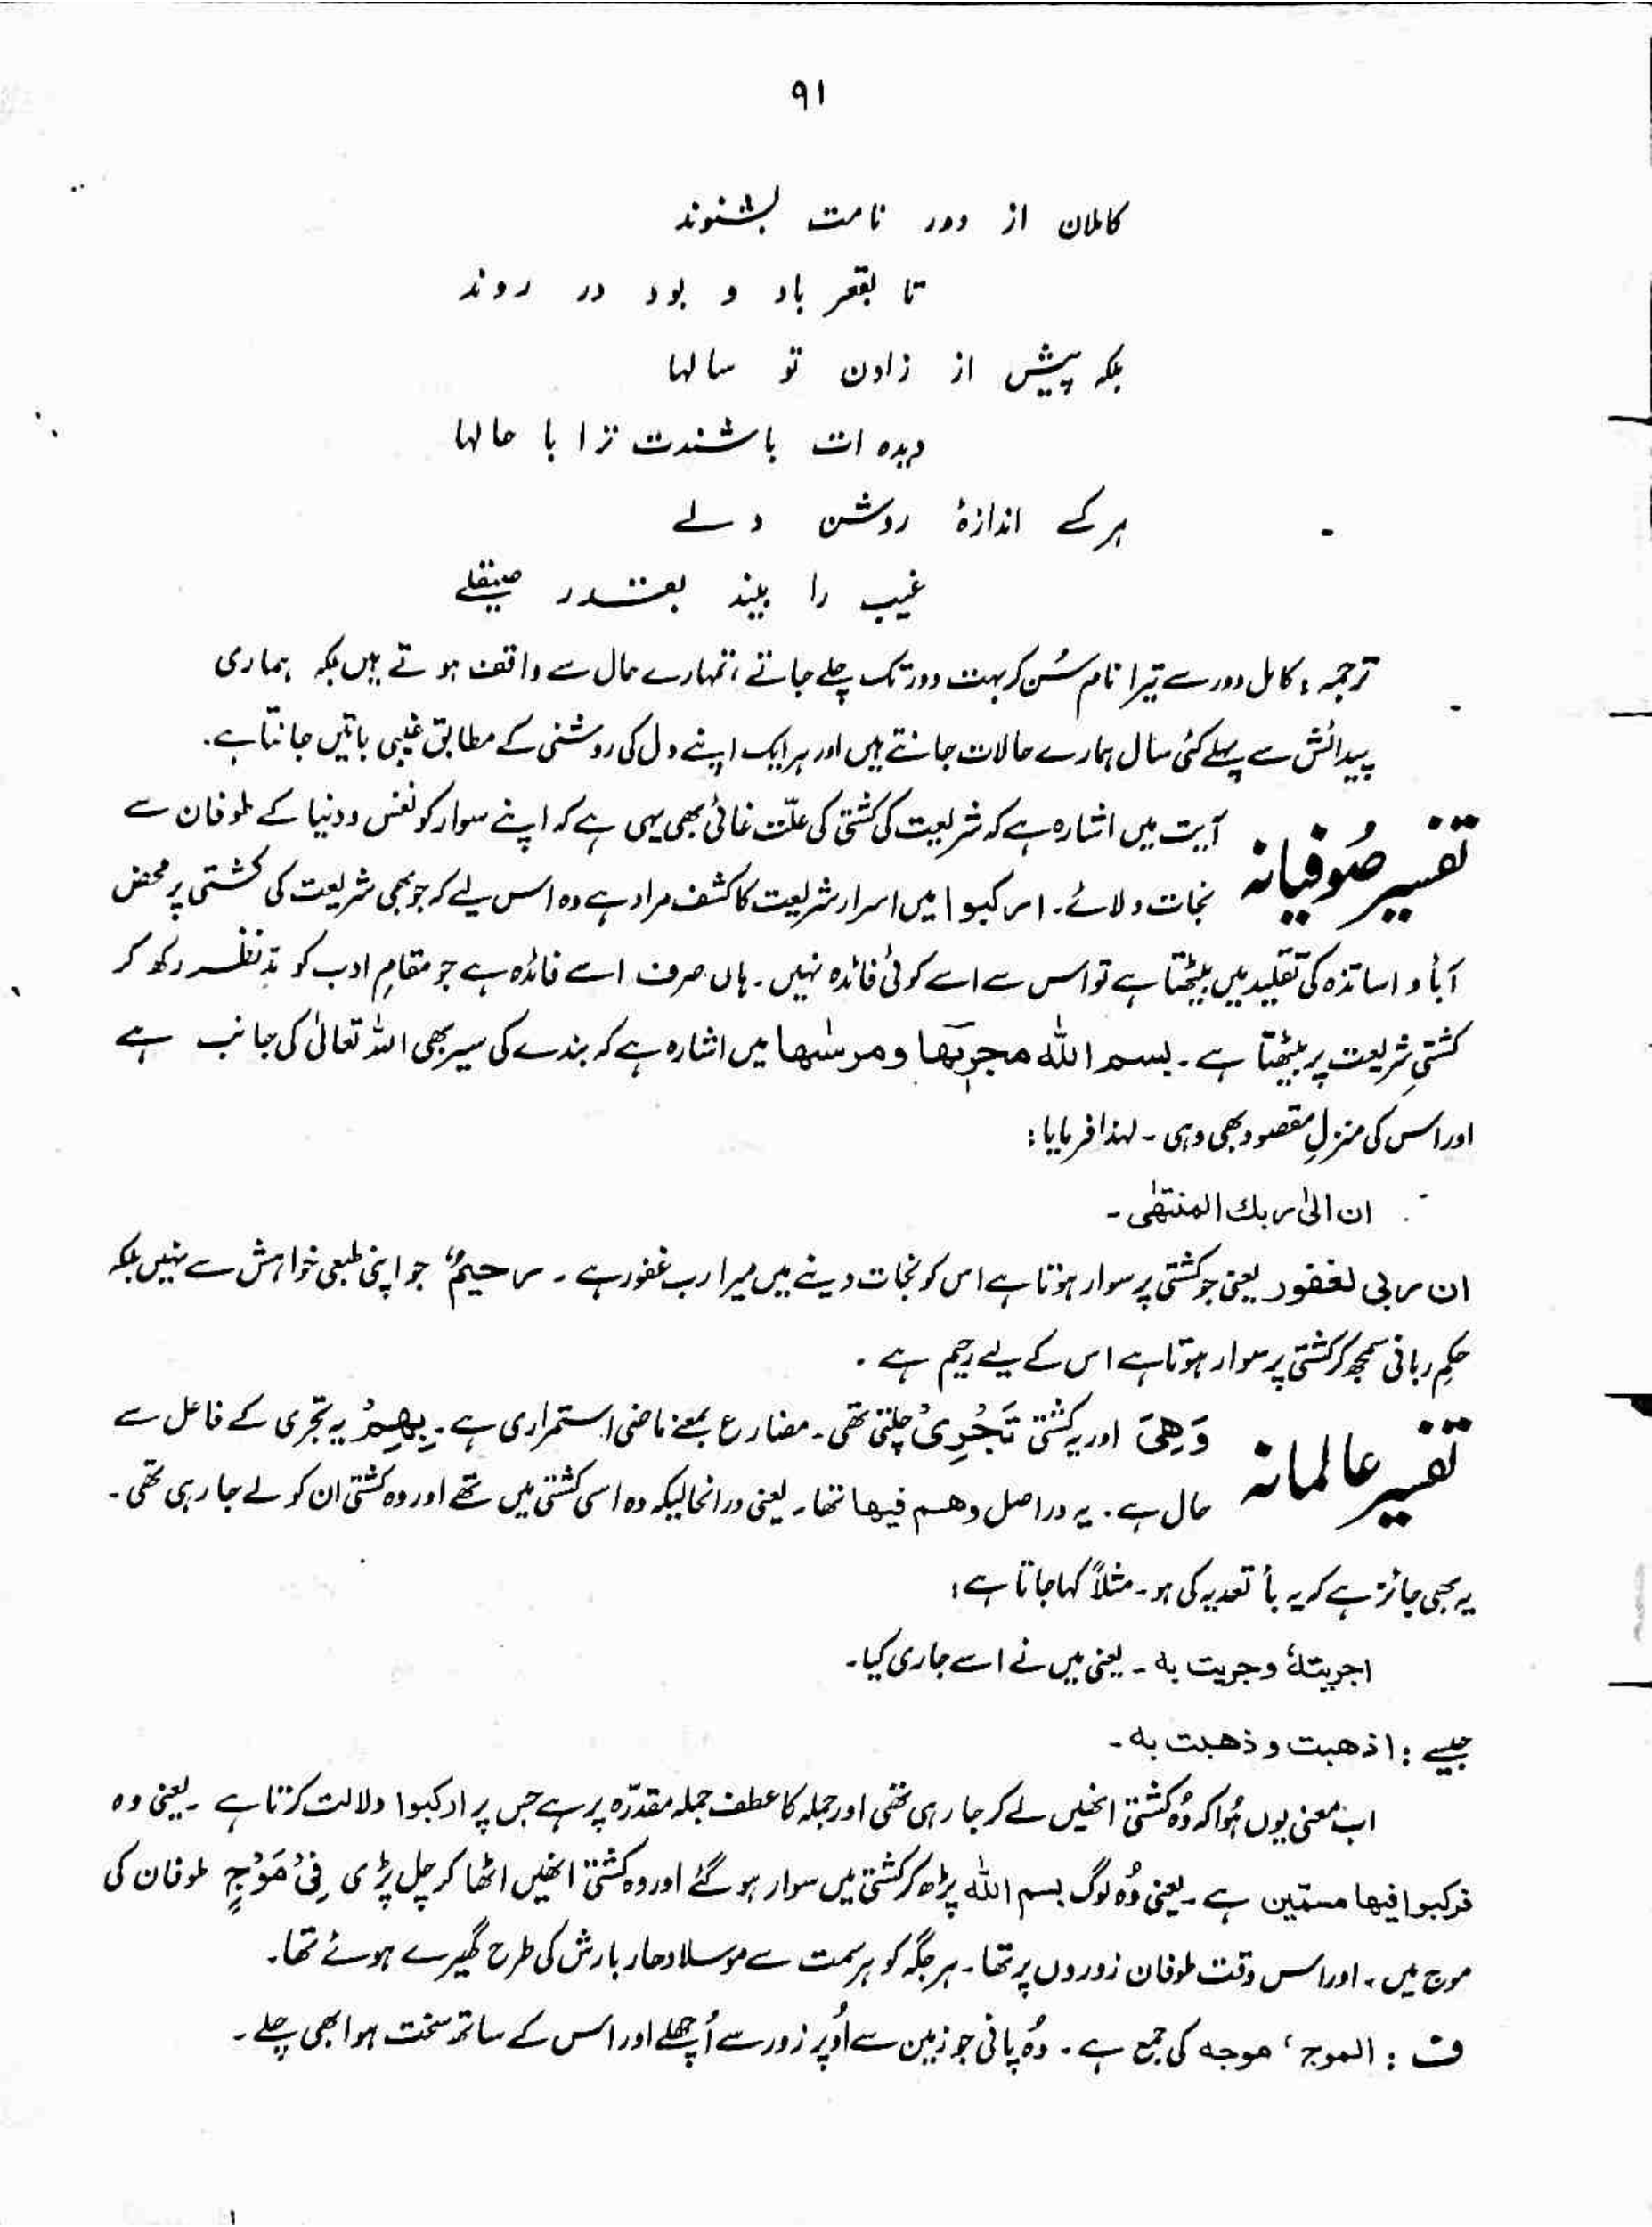 ۹۱
کاملان از دور نامت بشنوند
تا بقعر باد و بود در روند
بلکہ پیش از زادن تو سالہا
دیدہ ات باشندت ترا با حالہا
ہر کے اندازۂ روشن دلے
غیب را بیند بقدر صیقلے
ترجمہ: کامل دور سے تیرا نام سُن کر بہت دور تک چلے جاتے، تمہارے حال سے واقف ہوتے ہیں بلکہ ہماری
پیدائش سے پہلے کئی سال ہمارے حالات جانتے ہیں اور ہر ایک اپنے دل کی روشنی کے مطابق غیبی باتیں جانتا ہے۔
تفسیر صُوفیانہ آیت میں اشارہ ہے کہ شریعت کی کشتی کی علّت غائی بھی یہی ہے کہ اپنے سوار کو نفس و دنیا کے طوفان سے
نجات دلائے۔ ارکبوا میں اسرار شریعت کا کشف مراد ہے وہ اس لیے کہ جو بھی شریعت کی کشتی پر محض
آبأ و اساتذہ کی تقلید میں بیٹھتا ہے تو اس سے اسے کوئی فائدہ نہیں۔ ہاں صرف اسے فائدہ ہے جو مقامِ ادب کو مدّنظر رکھ کر
کشتیِ شریعت پر بیٹھتا ہے۔ بسم اللہ مجرٖىھا ومرسٰھا میں اشارہ ہے کہ بندے کی سیر بھی اللہ تعالیٰ کی جانب ہے
اور اس کی منزلِ مقصود بھی وہی۔ لہذا فرمایا:
ان الیٰ ربك المنتھٰی۔
ان ربی لغفور یعنی جو کشتی پر سوار ہوتا ہے اس کو نجات دینے میں میرا رب غفور ہے۔ رحیمٌ جو اپنی طبعی خواہش سے نہیں بلکہ
حکمِ ربانی سمجھ کر کشتی پر سوار ہوتا ہے اس کے لیے رحیم ہے۔
تفسیر عالمانہ وَھِیَ اور یہ کشتی تَجْرِیْ چلتی تھی۔ مضارع بمعنے ماضی استمراری ہے۔ بِھِمْ یہ تجری کے فاعل سے
حال ہے۔ یہ دراصل وھم فیھا تھا۔ یعنی درانحالیکہ وہ اسی کشتی میں تھے اور وہ کشتی ان کو لے جا رہی تھی۔
یہ بھی جائز ہے کہ یہ بأ تعدیہ کی ہو۔ مثلاً کہا جاتا ہے:
اجریتہٗ وجریت بہ۔ یعنی میں نے اسے جاری کیا۔
جیسے: اذھبت و ذھبت بہ۔
اب معنی یوں ہُوا کہ وُہ کشتی انھیں لے کر جا رہی تھی اور جملہ کا عطف جملہ مقدّرہ پر ہے جس پر ارکبوا دلالت کرتا ہے۔ یعنی وہ
فرکبوا فیھا مسمّین ہے۔ یعنی وُہ لوگ بسم اللہ پڑھ کر کشتی میں سوار ہو گئے اور وہ کشتی انھیں اٹھا کر چل پڑی فِیْ مَوْجٍ طوفان کی
موج میں۔ اور اس وقت طوفان زوروں پر تھا۔ ہر جگہ کو ہر سمت سے موسلادھار بارش کی طرح گھیرے ہوئے تھا۔
ف: الموج، موجہ کی جمع ہے۔ وُہ پانی جو زمین سے اُوپر زور سے اُچھلے اور اس کے ساتھ سخت ہوا بھی چلے۔